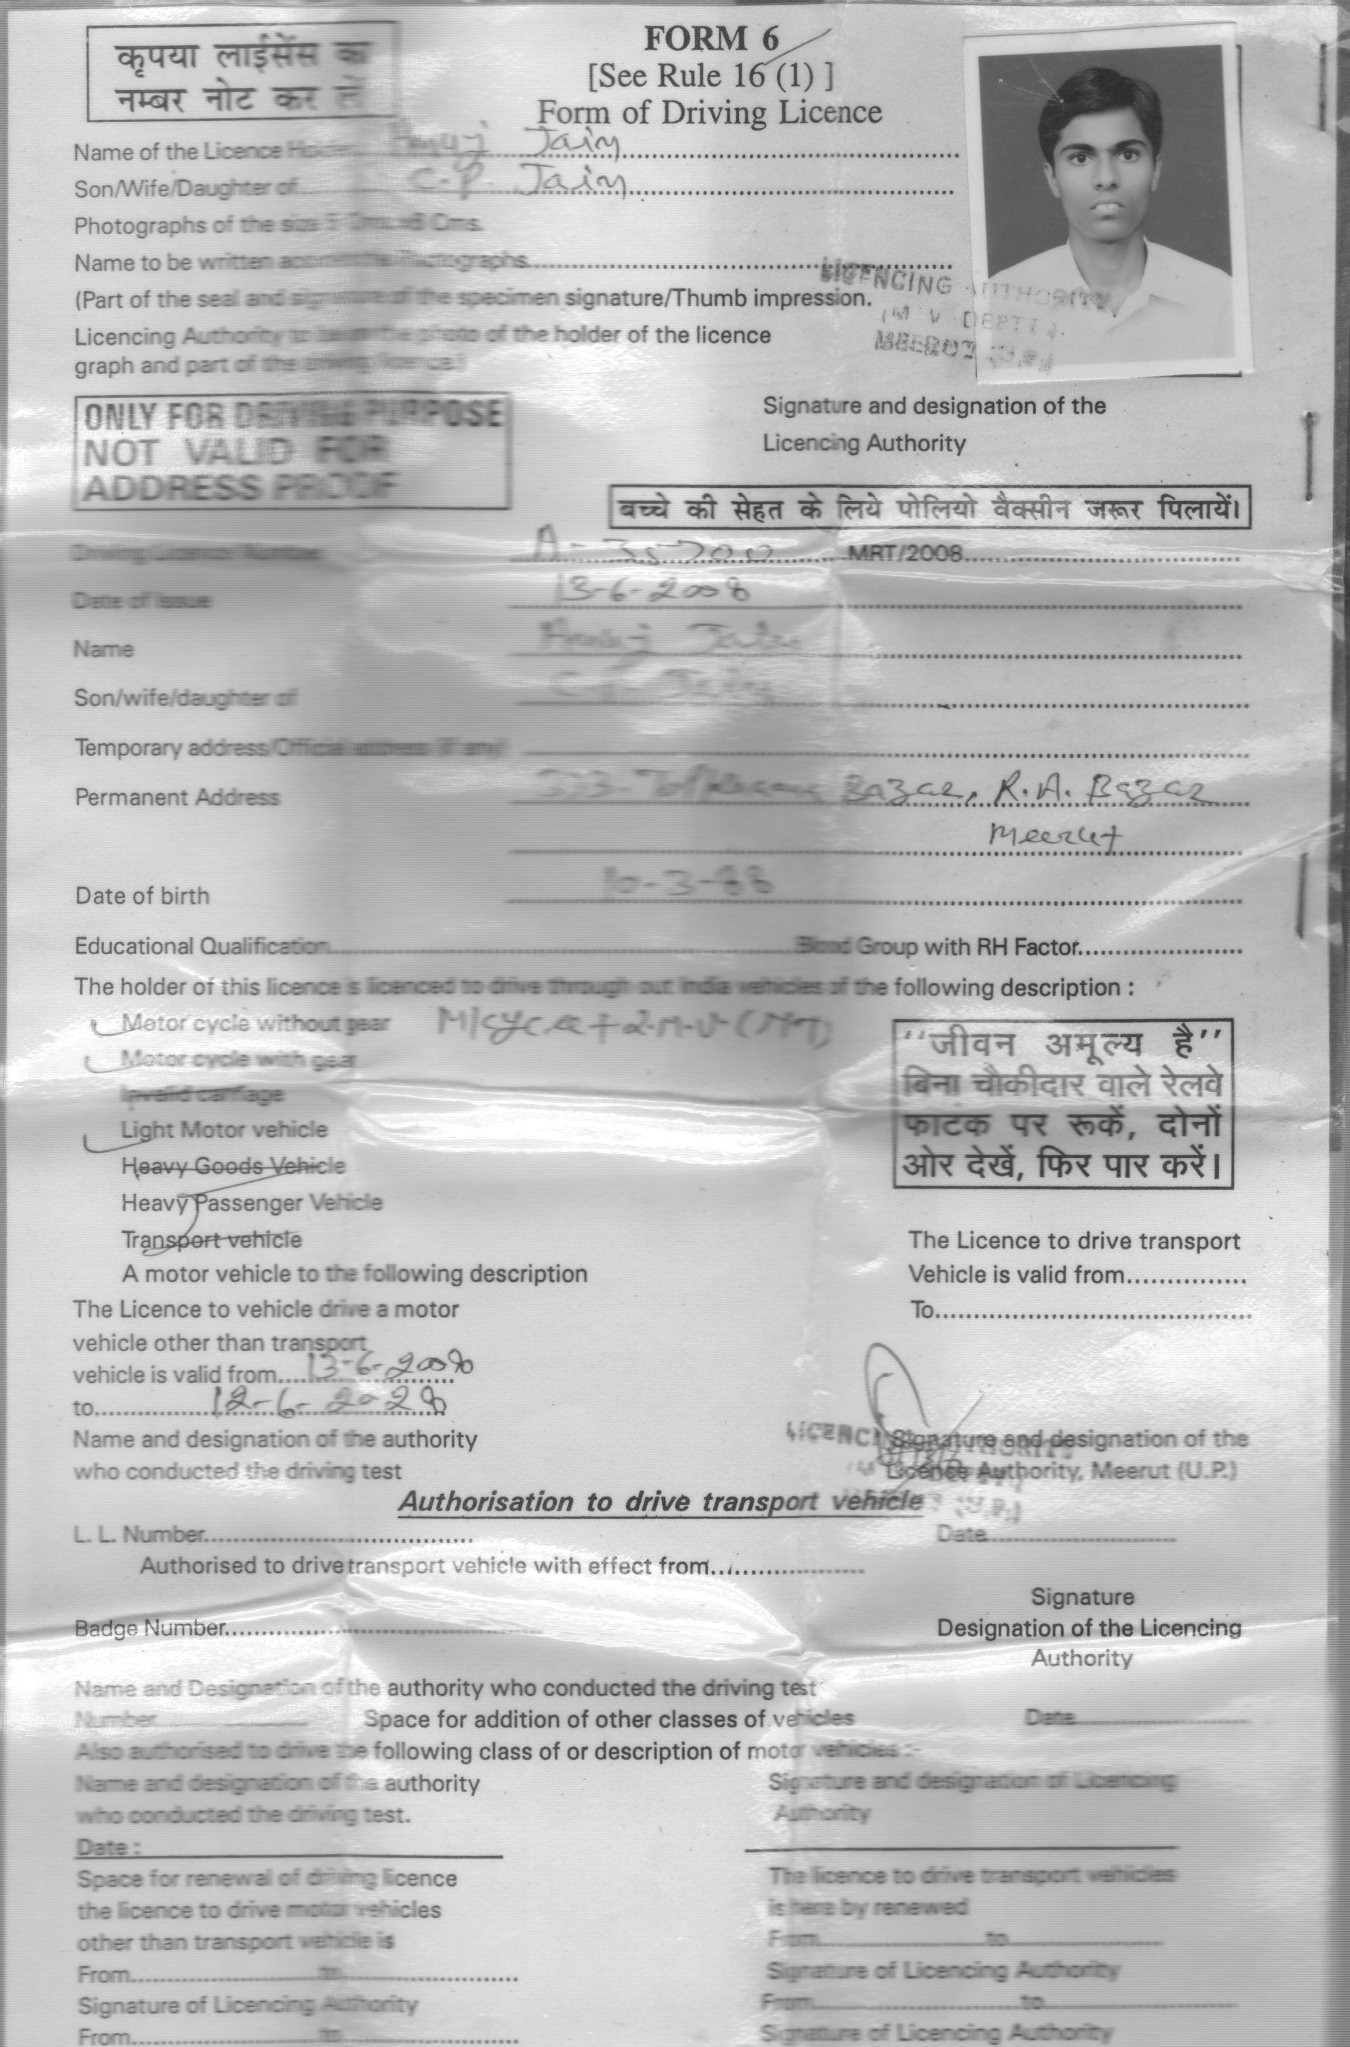 कृपया लाईसेंस का
नम्बर नोट कर लें
FORM 6
[See Rule 16 (1) ]
Form of Driving Licence
Name of the Licence Holder Anuj Jain
Son/Wife/Daughter of C.P. Jain
Photographs of the size Cms.
Name to be written Photographs
(Part of the seal and signature of the specimen signature/Thumb impression.
Licencing Authority to be in the photo of the holder of the licence
graph and part of the driving licence.)
LICENCING AUTHORITY
(M V DEPTT.
MEERUT
Signature and designation of the
Licencing Authority
ONLY FOR DRIVING PURPOSE
NOT VALID FOR
ADDRESS PROOF
बच्चे की सेहत के लिये पोलियो वैक्सीन जरूर पिलायें।
Driving Licence Number A- MRT/2008
Date of Issue 13-6-2008
Name Anuj Jain
Son/wife/daughter of C.P. Jain
Temporary address/Official address (if any)
Permanent Address Bazar, R.A. Bazar
Meerut
Date of birth 10-3-88
Educational Qualification Blood Group with RH Factor
The holder of this licence is licenced to drive through out India vehicles of the following description :
Motor cycle without gear M/cycle + L.M.V (
Motor cycle with gear
Invalid carriage
Light Motor vehicle
Heavy Goods Vehicle
Heavy Passenger Vehicle
Transport vehicle
A motor vehicle to the following description
''जीवन अमूल्य है''
बिना चौकीदार वाले रेलवे
फाटक पर रूकें, दोनों
ओर देखें, फिर पार करें।
The Licence to drive transport
Vehicle is valid from
To
The Licence to vehicle drive a motor
vehicle other than transport
vehicle is valid from 13-6-2008
to 12-6-2028
Name and designation of the authority
who conducted the driving test
Signature and designation of the
Licence Authority, Meerut (U.P.)
Authorisation to drive transport vehicle
L. L. Number Date
Authorised to drive transport vehicle with effect from
Signature
Badge Number Designation of the Licencing
Authority
Name and Designation of the authority who conducted the driving test
Number Space for addition of other classes of vehicles Date
Also authorised to drive the following class of or description of motor vehicles :-
Name and designation of the authority
who conducted the driving test.
Date :
Signature and designation of Licencing
Authority
Space for renewal of driving licence
the licence to drive motor vehicles
other than transport vehicle is
From to
Signature of Licencing Authority
From to
The licence to drive transport vehicles
is here by renewed
From to
Signature of Licencing Authority
From to
Signature of Licencing Authority